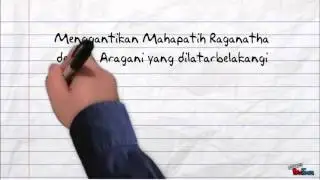 Menggantikan Mahapatih Raganatha
Aragani yang dilatarbelakangi